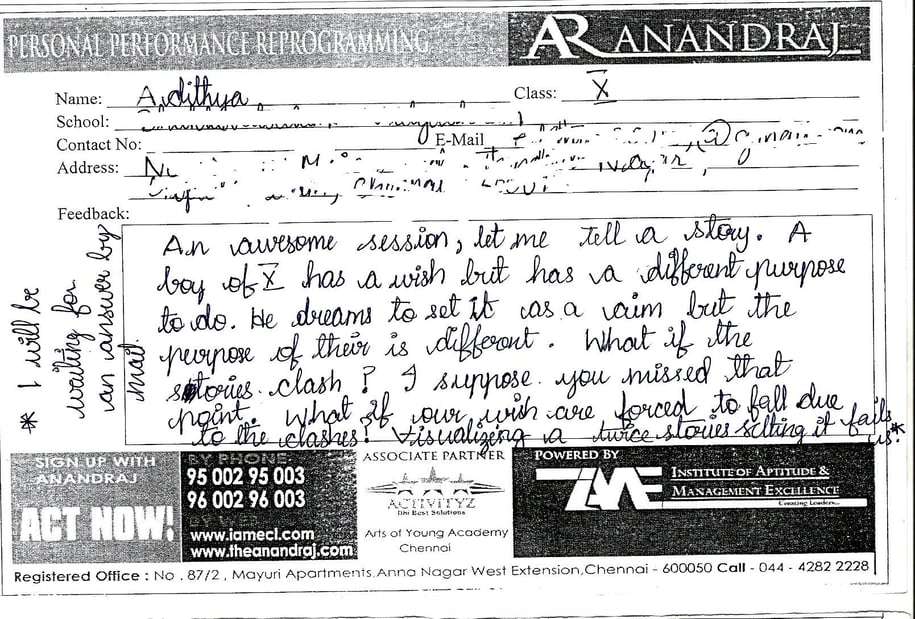 PERSONAL PERFORMANCE REPROGRAMMING
AR ANANDRAJ
Name: Adithya
Class: X
School:
Contact No:
E-Mail
Address:
Feedback:
An awesome session, let me tell a story. A
boy of X has a wish but has a different purpose
to do. He dreams to set it as a aim but the
purpose of their is different. What if the
stories clash? I suppose you missed that
point. What if our wish are forced to fall due
to the clashes! Visualizing a twice stories it fails
us!*
* I will be
waiting for
an answer by
mail.
SIGN UP WITH
ANANDRAJ
ACT NOW!
BY PHONE
95 002 95 003
96 002 96 003
www.iamecl.com
www.theanandraj.com
ASSOCIATE PARTNER
ACTIVITYZ
Dhi Best Solutions
Arts of Young Academy
Chennai
POWERED BY
IAME
INSTITUTE OF APTITUDE &
MANAGEMENT EXCELLENCE
Creating Leaders...
Registered Office : No . 87/2 , Mayuri Apartments,Anna Nagar West Extension,Chennai - 600050 Call - 044 - 4282 2228